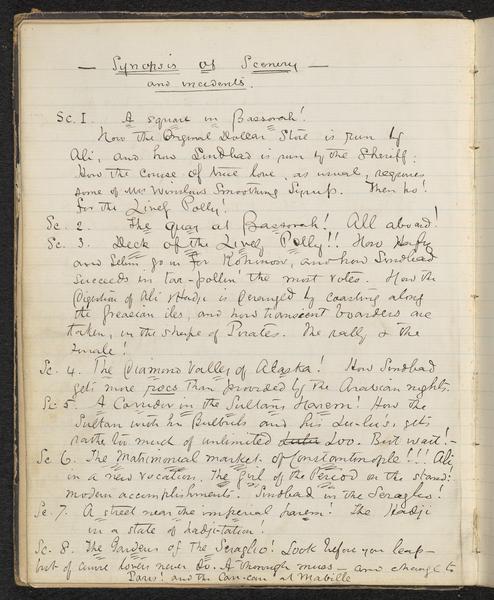 — Synopsis of Scenery —
and incidents.
Sc. I. A square in Bassorah!
How the Original Dollar Store is run by
Ali, and how Sindbad is run by the Sheriff:
How the course of true love, as usual, requires
some of Mrs Winslows Smoothing Syrup. Then ho!
for the Lively Polly!
Sc. 2. The Quay at Bassorah! All aboard!
Sc. 3. Deck of the Lively Polly!! How
and Selim go in for Kohinoor, and how Sindbad
succeeds in tar-pollin' the most votes. How the
Digestion of Ali & Hadji is deranged by coasting along
the greasian iles, and how transient boarders are
taken, in the shape of Pirates. The rally & the
finale!
Sc. 4. The Diamond Valley of Alaska! How Sindbad
gets more rocs than provided by the Arabian nights.
Sc. 5. A Corridor in the Sultan's Harem! How the
Sultan with his Bulbuls and his Lu-lu's, gets
rather too much of unlimited Loo. But wait!—
Sc. 6. The Matrimonial market of Constantinople!!! Ali,
in a new vocation. The Girl of the Period on the stand:
modern accomplishments! Sindbad in the Seraglio!
Sc. 7. A street near the imperial harem! The Hadji
in a state of hadji-tation!
Sc. 8. The Gardens of the Seraglio! Look before you leap—
but of course lovers never do. A thorough muss — and change to
Paris! and the Can-can at Mabille